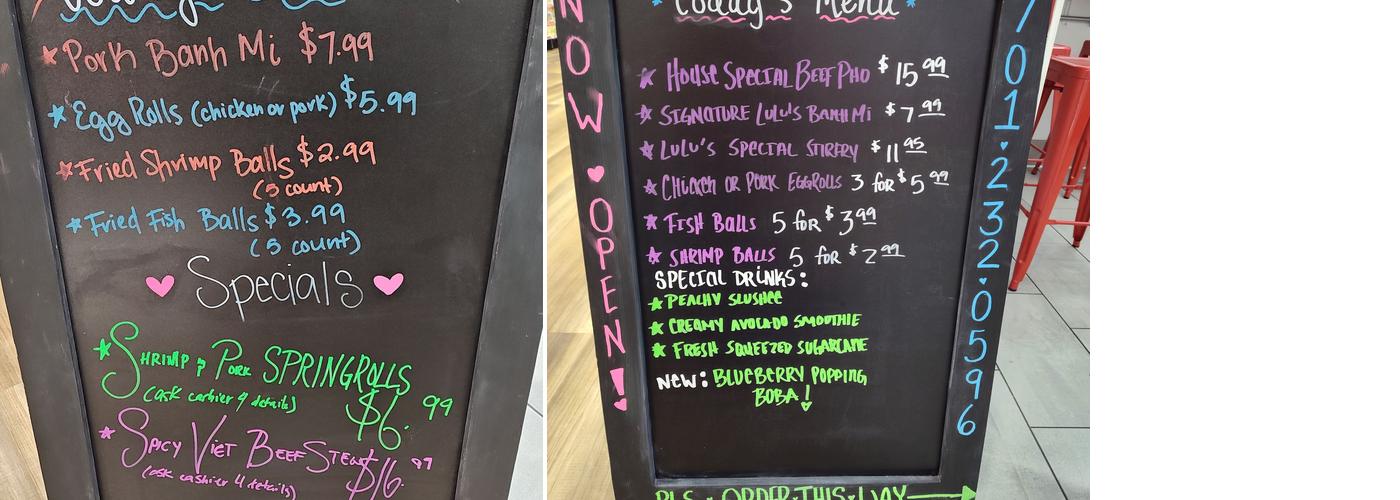 ★ Pork Banh Mi $7.99
★ Egg Rolls (chicken or pork) $5.99
★ Fried Shrimp Balls $2.99
(5 count)
★ Fried Fish Balls $3.99
(5 count)
♥ Specials ♥
★ SHRIMP & PORK SPRINGROLLS
(ask cashier 4 details) $6.99
★ SPICY VIET BEEF STEW $16.97
(ask cashier 4 details)
NOW ♥ OPEN!
Today's Menu
★ HOUSE SPECIAL BEEF PHO $15.99
★ SIGNATURE LULU'S BANH Mi $7.99
★ LULU'S SPECIAL STIRFRY $11.95
★ CHICKEN OR PORK EGGROLLS 3 for $5.99
★ FISH BALLS 5 for $3.99
★ SHRIMP BALLS 5 for $2.99
SPECIAL DRINKS:
★ PEACHY SLUSHEE
★ CREAMY AVOCADO SMOOTHIE
★ FRESH SQUEEZED SUGARCANE
NEW: BLUEBERRY POPPING
BOBA!
PLS ORDER THIS WAY
701·232·0596